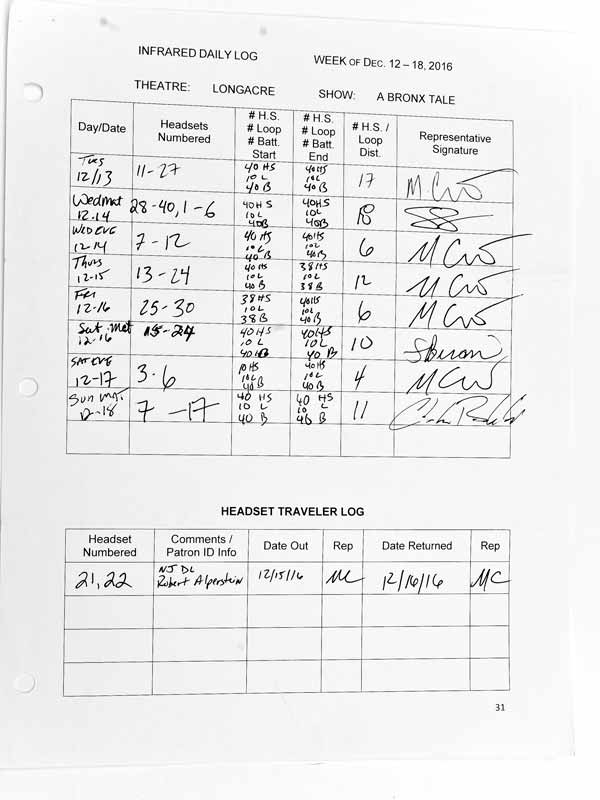 INFRARED DAILY LOG WEEK OF DEC. 12 – 18, 2016
THEATRE: LONGACRE SHOW: A BRONX TALE
Day/Date
Headsets
Numbered
# H.S.
# Loop
# Batt.
Start
# H.S.
# Loop
# Batt.
End
# H.S. /
Loop
Dist.
Representative
Signature
Tues
12/13
11-27
40HS
10L
40B
40HS
10L
40B
17
Wedmat
12-14
28-40, 1-6
40HS
10L
40B
40HS
10L
40B
WED EVE
12-14
7-12
40HS
10L
40B
40HS
10L
40B
6
Thurs
12-15
13-24
40HS
10L
40B
38HS
10L
38B
12
FRI
12-16
25-30
38HS
10L
38B
40HS
10L
40B
6
Sat. Mat
12-16
40HS
10L
40B
40HS
10L
40B
10
SAT EVE
12-17
3-6
10L
40B
40HS
10L
40B
4
Sun
12-18
7-17
40 HS
10 L
40 B
40 HS
10 L
40 B
11
HEADSET TRAVELER LOG
Headset
Numbered
Comments /
Patron ID Info
Date Out
Rep
Date Returned
Rep
21, 22
NJ DL
Robert Alperstein
12/15/16
MC
12/16/16
MC
31